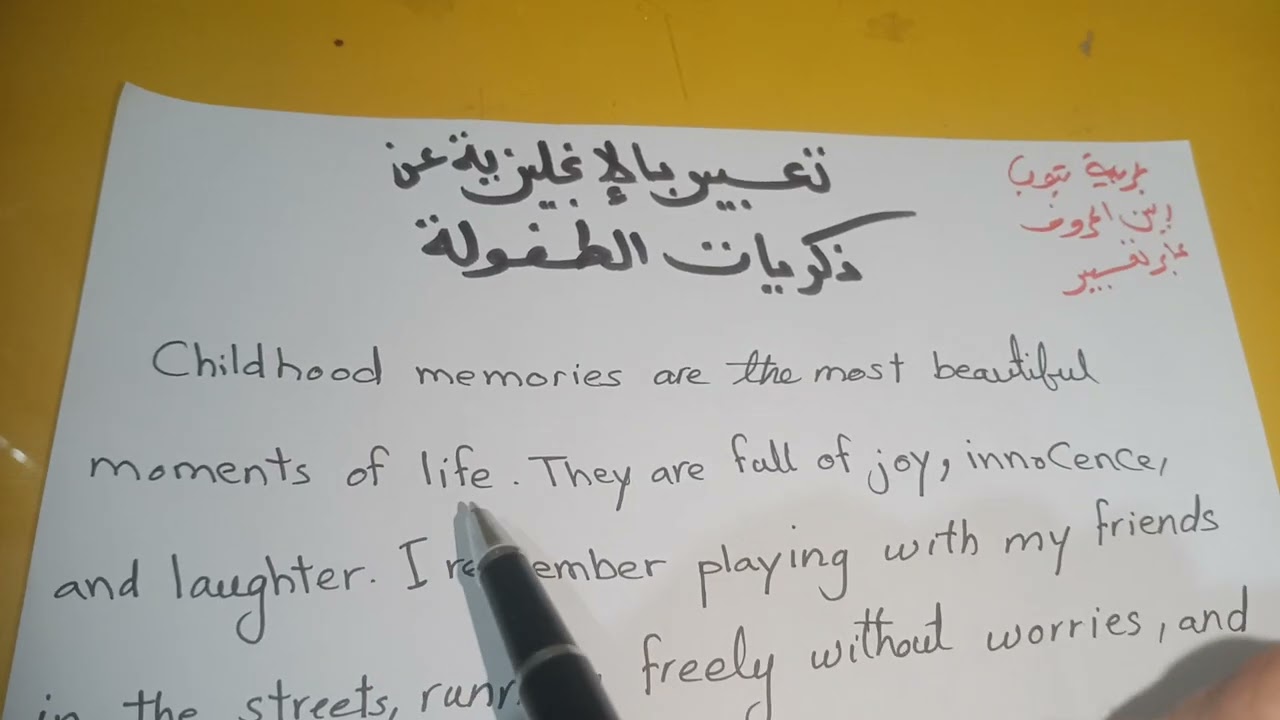 تعبير بالإنجليزية عن
ذكريات الطفولة
Childhood memories are the most beautiful
moments of life. They are fall of joy, innocence,
and laughter. I playing with my friends
in the streets, freely without worries, and